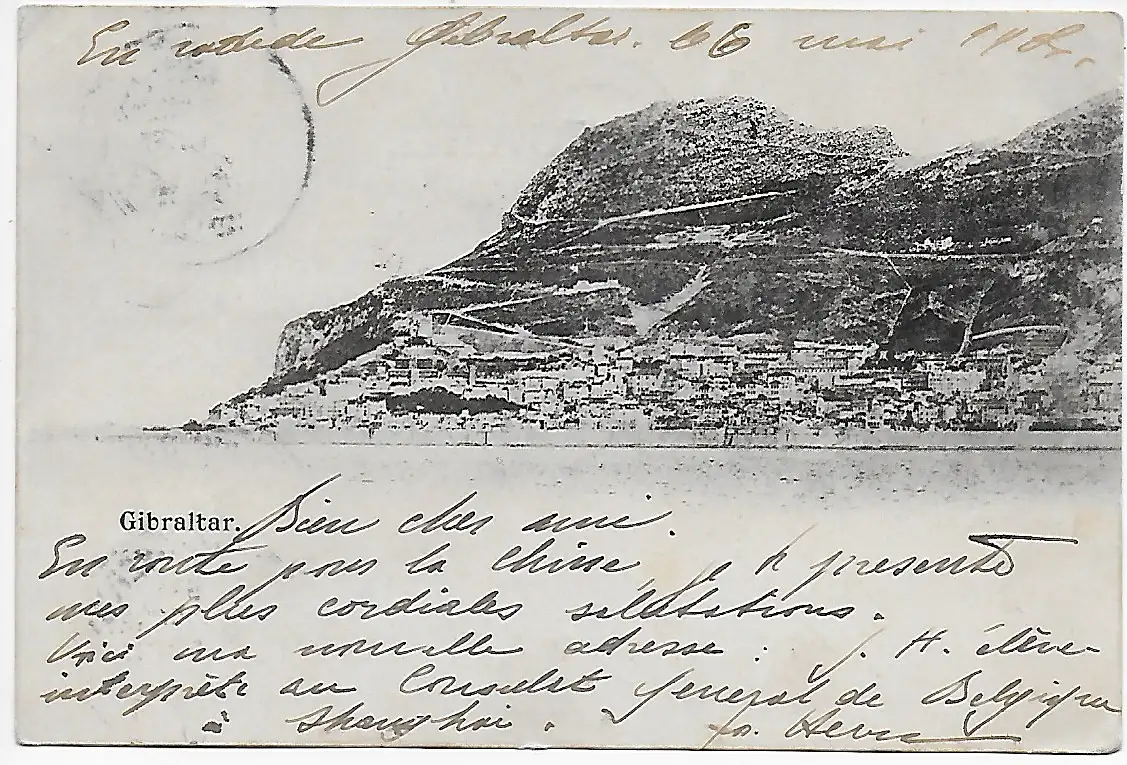 En rade de Gibraltar. 6 mai
Gibraltar.
Bien cher ami.
En route pour la Chine, je te présente
mes plus cordiales salutations.
Voici ma nouvelle adresse : J. H. élève-
interprète au Consulat général de Belgique
à Shanghai.